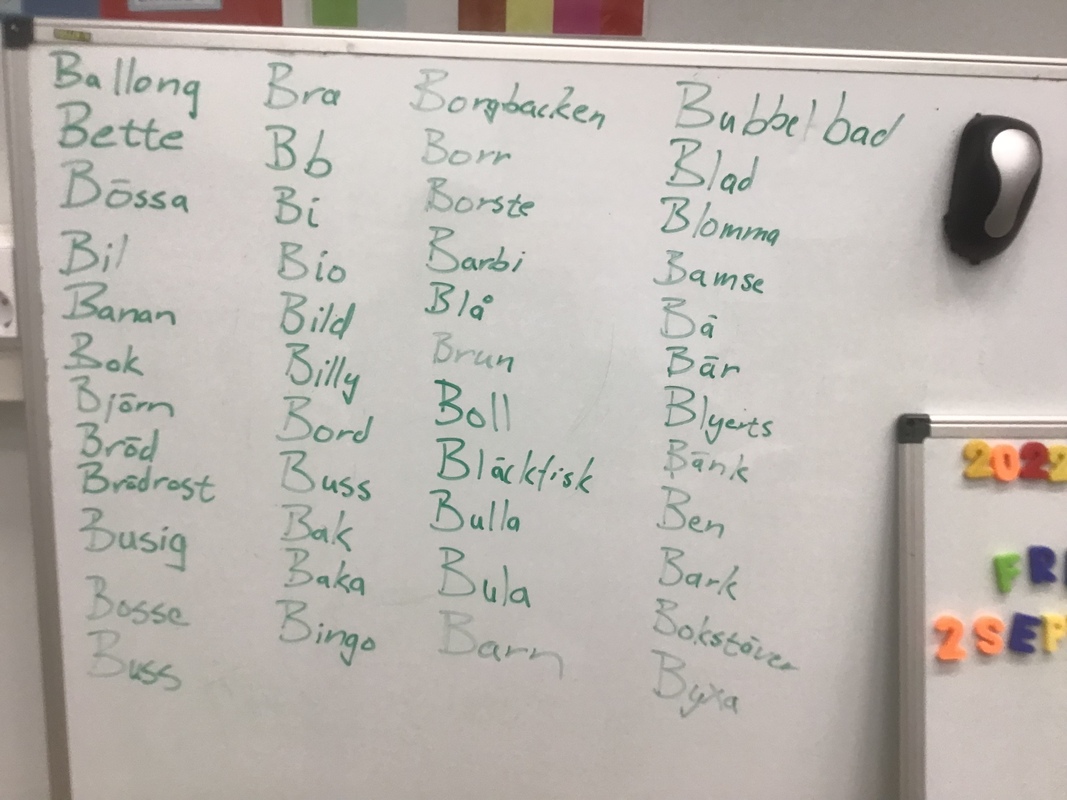 Ballong
Bette
Bössa
Bil
Banan
Bok
Björn
Bröd
Brödrost
Busig
Bosse
Buss
Bra
Bb
Bi
Bio
Bild
Billy
Bord
Buss
Bak
Baka
Bingo
Borgbacken
Borr
Borste
Barbi
Blå
Brun
Boll
Bläckfisk
Bulla
Bula
Barn
Bubbelbad
Blad
Blomma
Bamse
Bä
Bär
Blyerts
Bänk
Ben
Bark
Bokstäver
Byxa
2022
FR
2 SEP